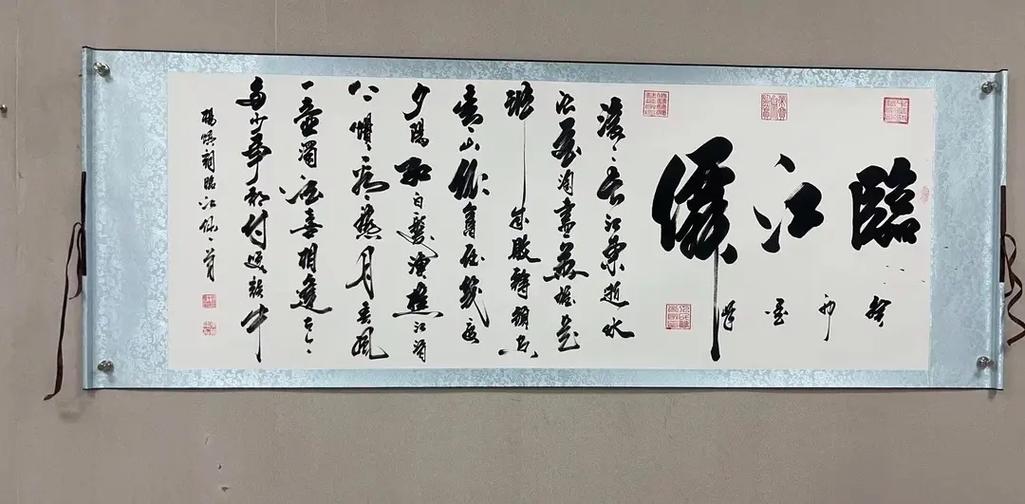 臨江僊
滾々長江東逝水
浪花淘盡英雄是
非成敗轉頭空
青山依舊在幾度
夕陽紅白髮漁樵江渚
上慣看秋月春風
一壺濁酒喜相逢古今
多少事都付笑談中
楊慎詞臨江仙